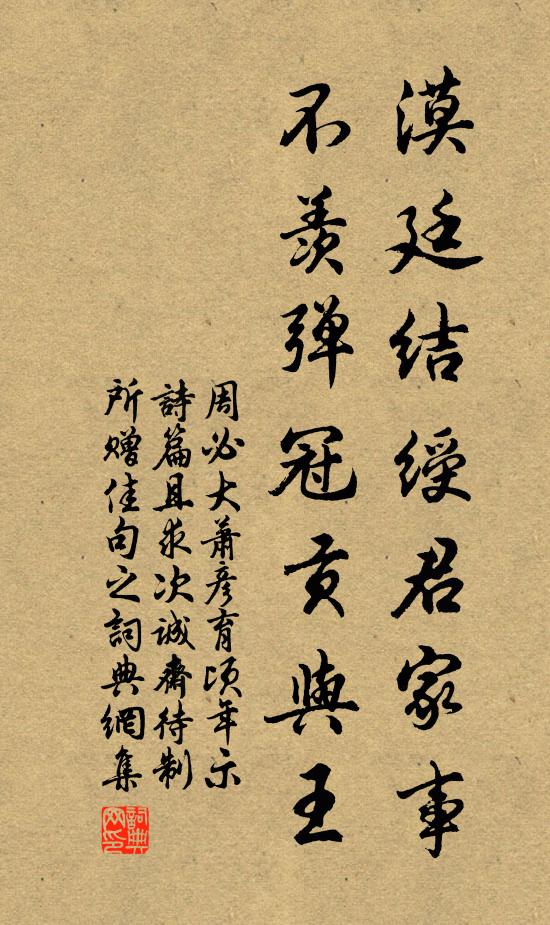 漠廷結綬君家事
不羨彈冠貢與王
周必大蕭彥育頃年示
詩篇且求次誠齋待制
所贈佳句之詞典網集
詞典網印